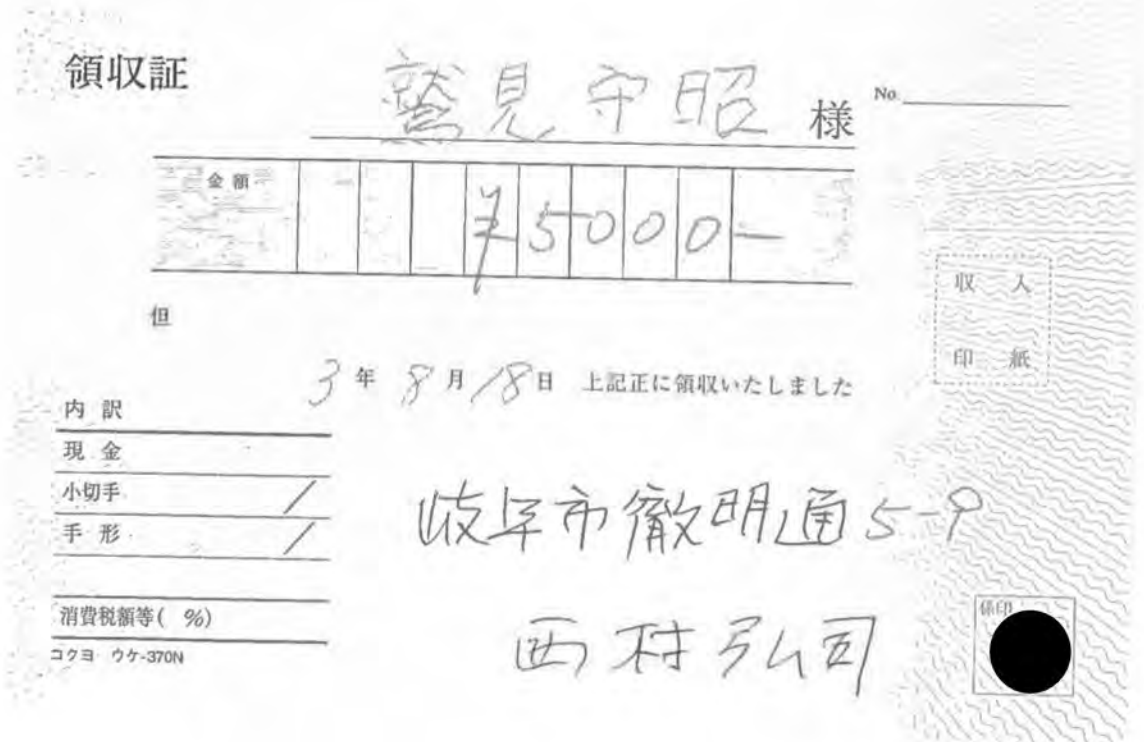 領収証
鷲見守昭 様
No.
金額 ¥5000-
収入
印紙
但
3年 8月 18日 上記正に領収いたしました
内訳
現金
小切手 /
手形 /
消費税額等( %)
コクヨ ウケ-370N
岐阜市徹明通5-9
西村弘司
係印